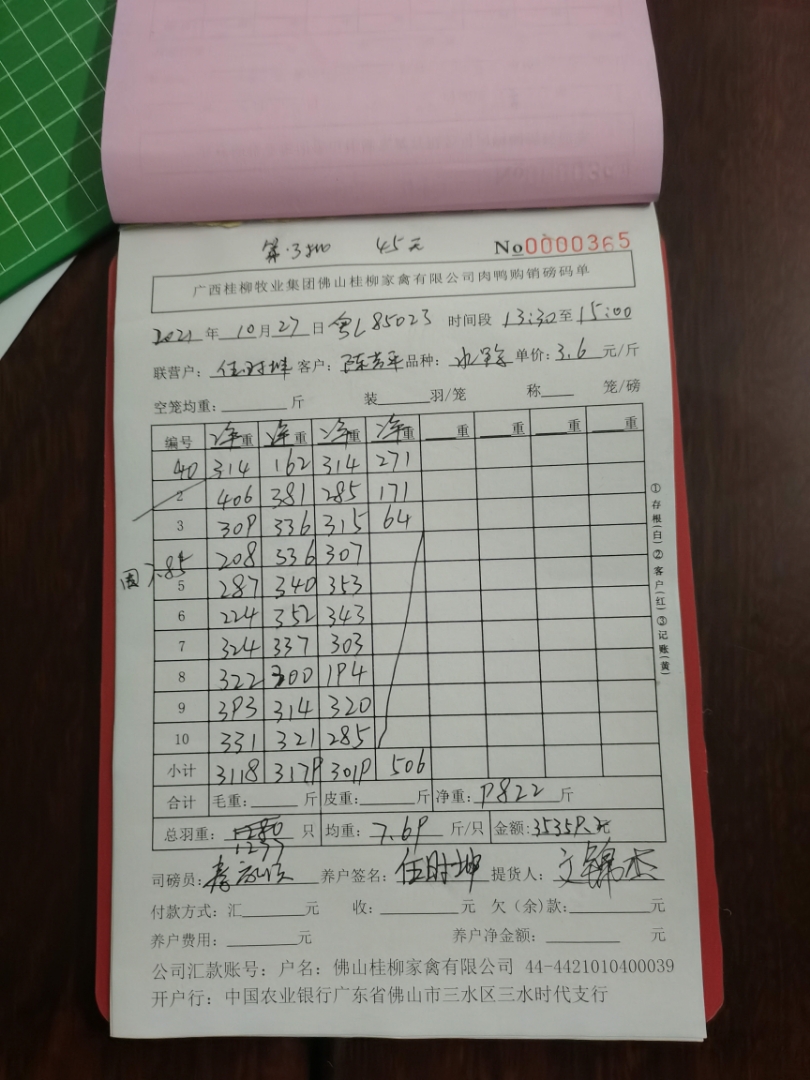 45元 No 0000365
广西桂柳牧业集团佛山桂柳家禽有限公司肉鸭购销磅码单
2021年10月27日 粤L85023 时间段 13:30至15:00
联营户: 任时坤 客户: 品种: 单价: 3.6 元/斤
空笼均重: 斤 装 羽/笼 称 笼/磅
编号 净重 净重 净重 净重 重 重 重 重
40 314 162 314 271
2 406 381 285 171
3 309 336 315 64
208 336 307
5 287 340 353
6 224 352 343
7 324 337 303
8 322 300 194
9 393 314 320
10 331 321 285
小计 3118 3179 3019 506
合计 毛重: 斤 皮重: 斤 净重: 9822 斤
总羽重: 1277 只 均重: 7.69 斤/只 金额: 35359.元
司磅员: 养户签名: 任时坤 提货人: 文锦杰
付款方式: 汇 元 收: 元 欠(余)款: 元
养户费用: 元 养户净金额: 元
公司汇款账号: 户名: 佛山桂柳家禽有限公司 44-4421010400039
开户行: 中国农业银行广东省佛山市三水区三水时代支行
①存根(白)②客户(红)③记账(黄)